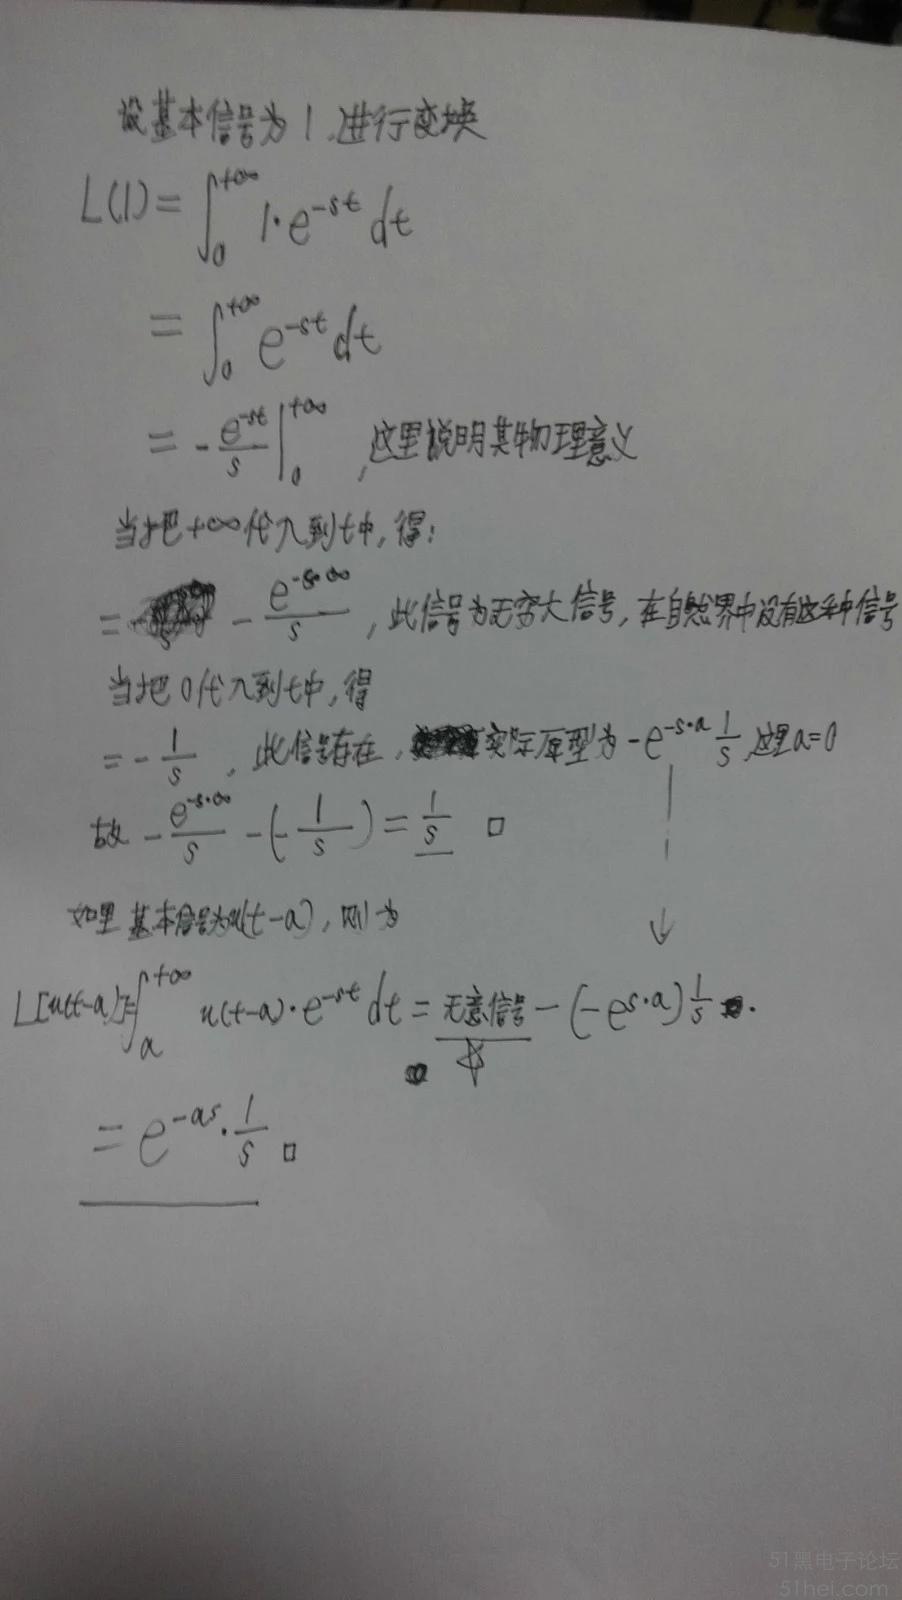 设基本信号为1,进行变换
L(1)=∫₀^{+∞} 1·e^{-st} dt
=∫₀^{+∞} e^{-st} dt
=-e^{-st}/s |₀^{+∞},这里说明其物理意义
当把+∞代入到t中,得:
= -e^{-s·∞}/s,此信号为无穷大信号,在自然界中没有这种信号
当把0代入到t中,得
=-1/s,此信号存在,实际原型为-e^{-s·a} 1/s,这里a=0
故 -e^{-s·∞}/s-(-1/s)=1/s □
如果基本信号为u(t-a),则为
L[u(t-a)]=∫ₐ^{+∞} u(t-a)·e^{-st} dt=无意信号-(-e^{s·a})1/s.
=e^{-as}·1/s □
51黑电子论坛
51hei.com